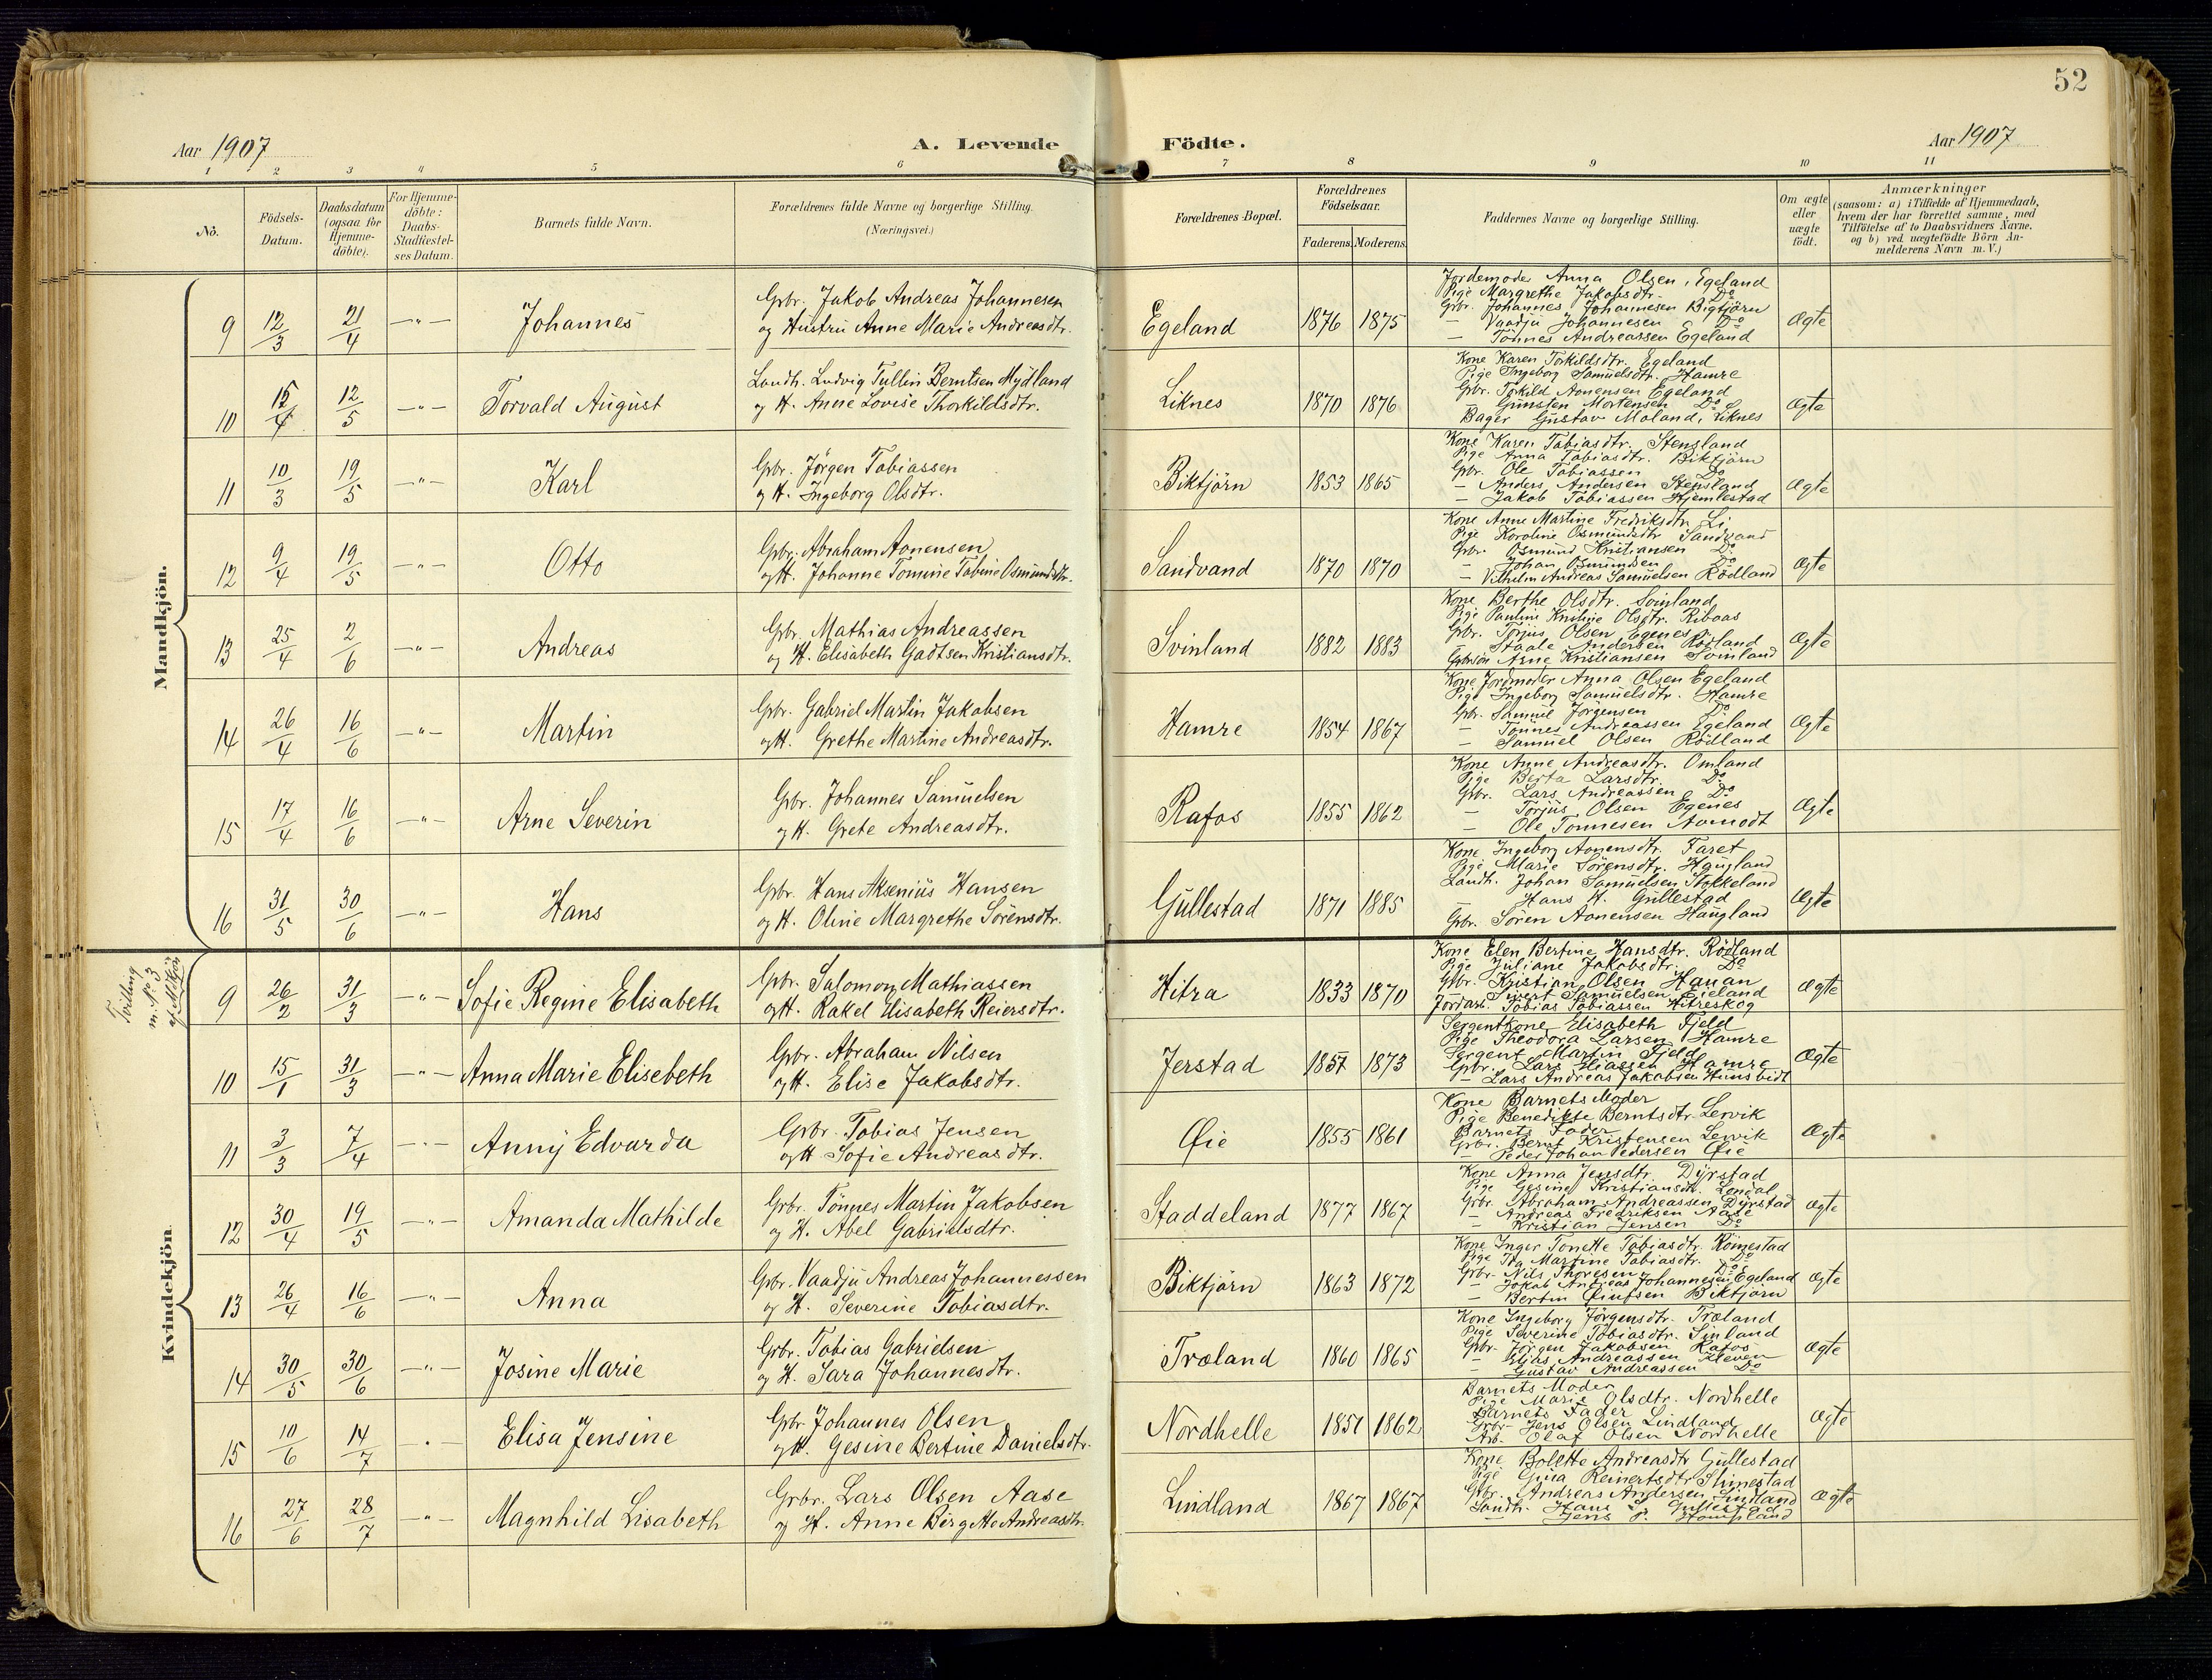 52
Aar 1907
A. Levende Födte.
Aar 1907
1 2 3 4 5 6 7 8 9 10 11
No.
Födsels-Datum.
Daabsdatum (ogsaa for Hjemme-döbte).
For Hjemme-döbte: Daabs-Stadfæstel-ses Datum.
Barnets fulde Navn.
Forældrenes fulde Navne og borgerlige Stilling.
(Næringsvei.)
Forældrenes Bopæl.
Forældrenes Födselsaar.
Faderens. Moderens.
Faddernes Navne og borgerlige Stilling.
Om ægte eller uægte födt.
Anmærkninger
(saasom: a) i Tilfælde af Hjemmedaab, hvem der har forrettet samme, med Tilföielse af to Daabsvidners Navne, og b) ved uægtefödte Börn Anmelderens Navn m. V.)
Mandkjön.
9 12/3 21/4 —"— Johannes
Gbr. Jakob Andreas Johannesen
og Hustru Anne Marie Andreasdtr.
Egeland 1876 1875
Jordemode Anna Olsen, Egeland
Pige Margrethe Jakobsdtr. Do
Gbr. Johannes Johannesen Bigtjörn
— Vaadju Johannesen Do
— Tönnes Andreassen Egeland
Ægte
10 15/4 12/5 —"— Torvald August
Landh. Ludvig Tullin Berntsen Mydland
og H. Anne Lovise Thorkildsdtr.
Liknes 1870 1876
Kone Karen Torkildsdtr. Egeland
Pige Ingeborg Samuelsdtr. Hamre
Gbr. Torkild Aonensen Egeland
— Gunsten Mortensen Do
Bager Gustav Moland, Liknes
Ægte
11 10/3 19/5 —"— Karl
Gbr. Jörgen Tobiassen
og H. Ingeborg Olsdtr.
Biktjörn 1853 1865
Kone Karen Tobiasdtr. Stensland
Pige Anna Tobiasdtr. Biktjörn
Gbr. Ole Tobiassen Do
— Anders Andersen Stensland
— Jakob Tobiassen Hjemlestad
Ægte
12 9/4 19/5 —"— Otto
Gbr. Abraham Aonensen
og H. Johanne Tomine Tobine Osmundsdtr.
Sandvand 1870 1870
Kone Anne Martine Fredriksdtr. Li
Pige Karoline Osmundsdtr Sandvand
Gbr. Osmund Kristiansen Do
— Johan Osmundsen Do
— Vilhelm Andreas Samuelsen Rödland
Ægte
13 25/4 2/6 —"— Andreas
Gbr. Mathias Andreassen
og H. Elisabeth Gadtsen Kristiansdtr.
Svinland 1882 1883
Kone Berthe Olsdtr. Svinland
Pige Pauline Kristine Olsdtr. Riboas
Gbr. Torjus Olsen Egenes
— Staale Andersen Rödland
Gbrsön Arne Kristiansen Svinland
Ægte
14 26/4 16/6 —"— Martin
Gbr. Gabriel Martin Jakobsen
og H. Grethe Martine Andreasdtr.
Hamre 1854 1867
Kone Jordmoder Anna Olsen Egeland
Pige Ingeborg Samuelsdtr. Hamre
Gbr. Samuel Jörgensen Do
— Tönnes Andreassen Egeland
— Samuel Olsen Rödland
Ægte
15 17/4 16/6 —"— Arne Severin
Gbr. Johannes Samuelsen
og H. Grete Andreasdtr.
Rafos 1855 1862
Kone Anne Andreasdtr. Omland
Pige Berta Larsdtr. Do
Gbr. Lars Andreassen Do
— Torjus Olsen Egenes
— Ole Tönnesen Aamodt
Ægte
16 31/5 30/6 —"— Hans
Gbr. Hans Aksenius Hansen
og H. Oline Margrethe Sörensdtr.
Gullestad 1871 1885
Kone Ingeborg Aonensdtr. Faret
Pige Marie Sörensdtr. Haugland
Landh. Johan Samuelsen Stokkeland
— Hans H. Gullestad
Gbr. Sören Aonensen Haugland
Ægte
Kvindekjön
Tvilling m. No 3 af M.kjön
9 26/2 31/3 —"— Sofie Regine Elisabeth
Gbr. Salomon Mathiassen
og H. Rakel Elisabeth Reiersdtr.
Hitra 1833 1870
Kone Elen Bertine Hansdtr. Rödland
Pige Juliane Jakobsdtr. Do
Gbr. Kristian Olsen Hauan
— Sivert Samuelsen Eieland
Jordarb. Tobias Tobiassen Hitreskog
Ægte
10 15/1 31/3 —"— Anna Marie Elisebeth
Gbr. Abraham Nilsen
og H. Elise Jakobsdtr.
Jerstad 1857 1873
Sergentkone Elisabeth Fjeld
Pige Theodora Larsen Hamre
Sergent Martin Fjeld
Gbr. Lars Eliassen Hamre
— Lars Andreas Jakobsen Hunsbidt
Ægte
11 3/3 7/4 —"— Anny Edvarda
Gbr. Tobias Jensen
og H Sofie Andreasdtr.
Øie 1855 1861
Kone Barnets Moder
Pige Benedikte Berntsdtr. Lervik
Barnets Fader
Gbr. Bernt Kristensen Lervik
— Peder Johan Pedersen Øie
Ægte
12 30/4 19/5 —"— Amanda Mathilde
Gbr. Tönnes Martin Jakobsen
og H. Abel Gabrielsdtr.
Staddeland 1877 1867
Kone Anna Jensdtr. Dyrstad
Pige Gesine Kristiansdtr. Londal
Gbr. Abraham Andreassen Dyrstad
— Andreas Fredriksen Aase
— Kristian Jensen Do
Ægte
13 26/4 16/6 —"— Anna
Gbr. Vaadju Andreas Johannessen
og H. Severine Tobiasdtr.
Biktjörn 1863 1872
Kone Inger Tonette Tobiasdtr. Römestad
Pige Ita Martine Tobiasdtr. Do
Gbr. Nils Thoresen Do
— Jakob Andreas Johannesen Egeland
— Bertin Eiufsen Biktjörn
Ægte
14 30/5 30/6 —"— Josine Marie
Gbr. Tobias Gabrielsen
og H. Sara Johannesdtr.
Træland 1860 1865
Kone Ingeborg Jörgensdtr. Træland
Pige Severine Tobiasdtr. Sinland
Gbr. Jörgen Jakobsen Rafos
— Elias Andreassen Kleven
— Gustav Andreassen Do
Ægte
15 10/6 14/7 —"— Elisa Jensine
Gbr Johannes Olsen
og H. Gesine Bertine Danielsdtr.
Nordhelle 1851 1862
Barnets Moder
Pige Marie Olsdtr. Nordhelle
Barnets Fader
Gbr. Jens Olsen Lindland
Arb. Olaf Olsen Nordhelle
Ægte
16 27/6 28/7 —"— Magnhild Lisabeth
Gbr. Lars Olsen Aase
og H. Anne Birgitte Andreasdtr.
Lindland 1867 1867
Kone Bolette Andreasdtr Gullestad
Pige Gina Reinertsdtr Slimestad
Gbr. Andreas Andersen Lindland
Landh. Hans S. Gullestad
— Jens P.
Ægte